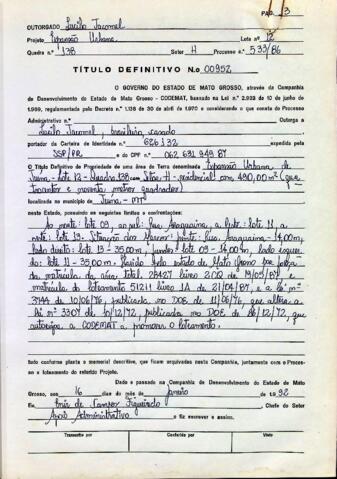 PAG. 3
OUTORGADO Lucilo Jacomel
Projeto Expansão Urbana Lote n.o 12
Quadra n.o 138 Setor H Processo n.o 533/86
TÍTULO DEFINITIVO N.o 00952
O GOVERNO DO ESTADO DE MATO GROSSO, através da Companhia
de Desenvolvimento do Estado de Mato Grosso - CODEMAT, baseado na Lei n.o 2.922 de 10 de junho de
1969, regulamentada pelo Decreto n.o 1.138 de 30 de abril de 1970 e considerando o que consta do Processo
Administrativo n.o Outorga a
Lucilo Jacomel, brasileiro, casado
portador da Carteira de Identidade n.o 626132 expedida pela
SSP/PR e do CPF n.o 062 631 949 87
O Título Definitivo de Propriedade de uma área de Terra denominada Expansão Urbana de
Juína - lote 12 - Quadra 138 com Setor H - residencial com 490,00 m² (quatrocentos e noventa metros quadrados)
localizada no município de Juína - MT
neste Estado, possuindo os seguintes limites e confrontações:
Ao norte: lote 09, ao sul: Rua Araguaina, a leste: lote 11, a
oeste: lote 13. Situação dos Marcos: frente: Rua Araguaina - 14,00m,
lado direito: lote 13 - 35,00m, fundo: lote 09 - 14,00m, lado esquerdo: lote 11 - 35,00m. Havido pelo estado de Mato Grosso por força
da matrícula da área total 28427 livro 2CQ de 19/03/87 e
matrícula do loteamento 51211 livro 1A de 21/04/87, e a lei nº
3744 de 10/06/76, publicada no DOE de 11/06/76, que altera a
lei nº 3307 de 10/12/72, publicada no DOE de 18/12/72, que
autoriza a CODEMAT a promover o loteamento.
tudo conforme planta e memorial descritivo, que ficam arquivadas nesta Companhia, juntamente com o Processo e loteamento do referido Projeto.
Dado e passado na Companhia de Desenvolvimento do Estado de Mato
Grosso, aos 16 dias do mês de janeiro de 1992
Eu, Enir de Campos Figueiredo, Chefe do Setor
Apoio Administrativo o fiz escrever e assino.
Transcrito por Conferido por Visto